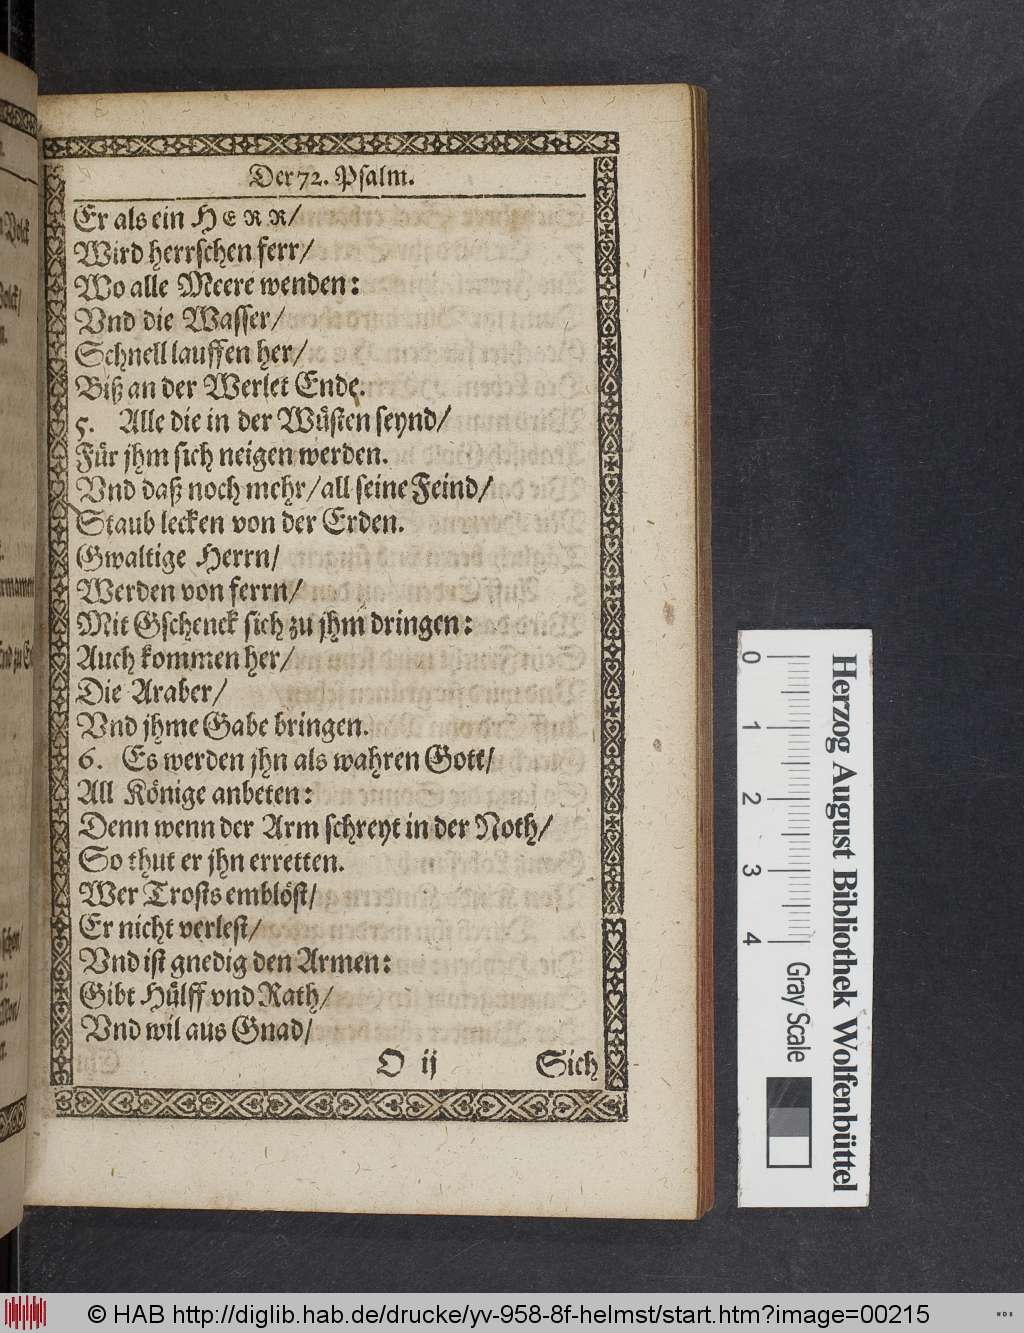 Der 72. Psalm.
Er als ein HERR/
Wird herrschen ferr/
Wo alle Meere wenden:
Vnd die Wasser/
Schnell lauffen her/
Biß an der Werlet Ende.
5. Alle die in der Wüsten seynd/
Für jhm sich neigen werden.
Vnd daß noch mehr/ all seine Feind/
Staub lecken von der Erden.
Gwaltige Herrn/
Werden von ferrn/
Mit Gschenck sich zu jhm dringen:
Auch kommen her/
Die Araber/
Vnd jhme Gabe bringen.
6. Es werden jhn als wahren Gott/
All Könige anbeten:
Denn wenn der Arm schreyt in der Noth/
So thut er jhn erretten.
Wer Trosts emblöst/
Er nicht verlest/
Vnd ist gnedig den Armen:
Gibt Hülff vnd Rath/
Vnd wil aus Gnad/
O ij Sich
Herzog August Bibliothek Wolfenbüttel
0 1 2 3 4 Gray Scale
© HAB http://diglib.hab.de/drucke/yv-958-8f-helmst/start.htm?image=00215